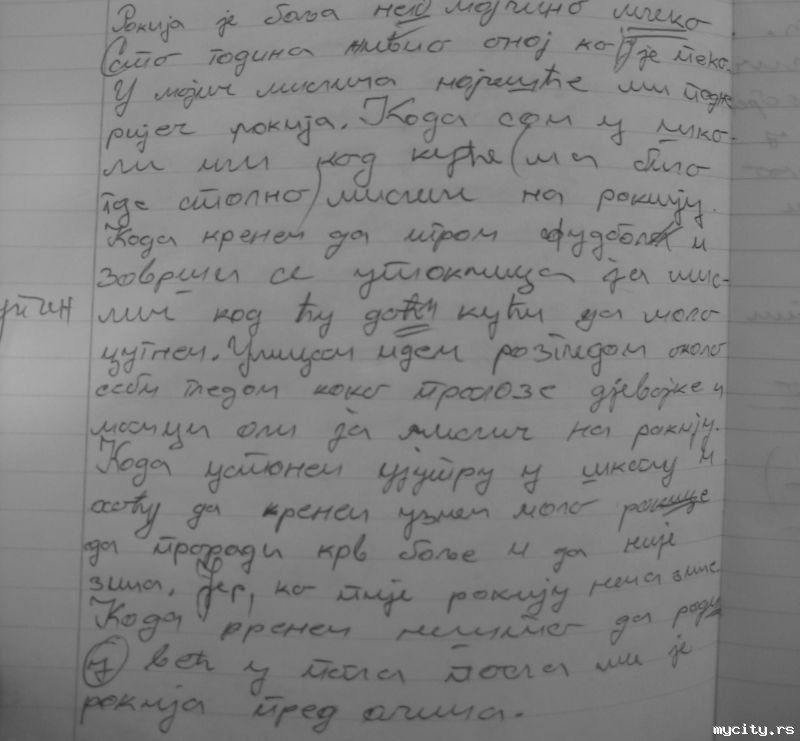 Ракија је боља него мајчино млеко
Сто година живио онај ко је пеко.
У мојим мислима најчешће ми падне
ријеч ракија. Када сам у шко-
ли или код куће (ма било
где стално) мислим на ракију.
Када кренем да играм фудбал и
заврши се утакмица ја мис-
лим кад ћу доћи кући да мало
цугнем. Улицом идем розгледам около
себи гледам како пролазе дјевојке и
момци али ја мислим на ракију.
Када устанем ујутру у школу и
оћу да кренем узмем мало ракије
да проради крв боље и да није
зима. Јер, ко пије ракију нема зиме
Када кренем нешто да радим
ја већ у пола посла ми је
ракија пред очима.
mycity.rs